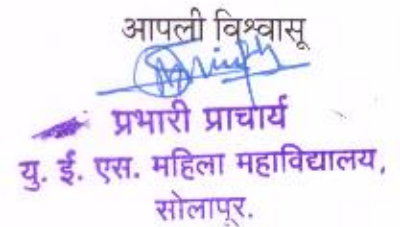 आपली विश्वासू
प्रभारी प्राचार्य
यु. ई. एस. महिला महाविद्यालय,
सोलापूर.